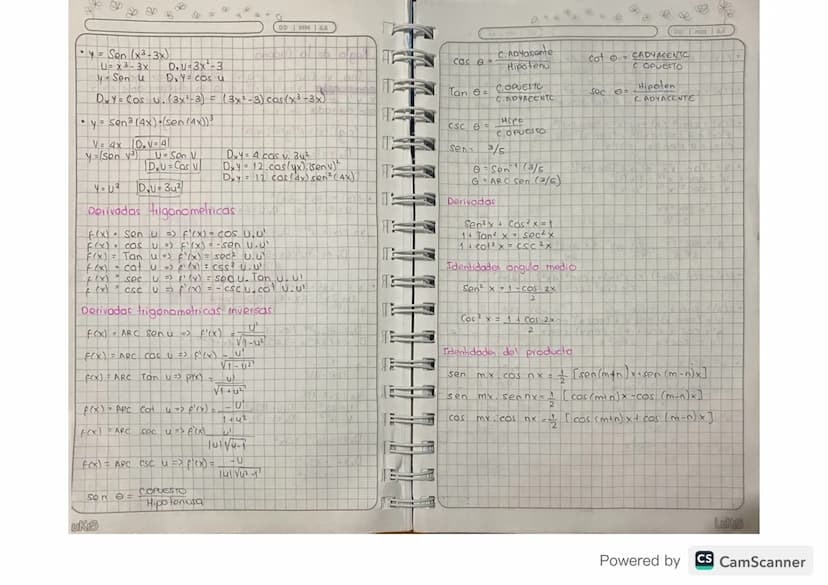 DD | MM | AA
• y = Sen (x³-3x)
U = x³-3x DxU = 3x²-3
y = Sen u DuY = cos u
DxY = Cos u. (3x²-3) = (3x²-3) cos(x³-3x)
• y = sen³(4x) + (sen(4x))³
V = 4x DxV = 4
y = (sen v³) U = Sen V DxY = 4 cos v. 3u²
DvU = Cos V DxY = 12 cos(4x).(senv)²
DxY = 12 cos(4x) sen²(4x)
Y = U³ DxU = 3u²
Derivadas trigonometricas
f(x) = sen u => f'(x) = cos u.u'
f(x) = cos u => f'(x) = -sen u.u'
f(x) = Tan u => f'(x) = sec² u.u'
f(x) = cot u => f'(x) = csc² u.u'
f(x) = sec u => f'(x) = sec u. Tan u. u'
f(x) = csc u => f'(x) = -csc u. cot u. u'
Derivadas trigonometricas inversas
f(x) = ARC sen u => f'(x) = u' / √1-u²
f(x) = ARC cos u => f'(x) = -u' / √1-u²
f(x) = ARC Tan u => f'(x) = u' / √1+u²
f(x) = ARC cot u => f'(x) = -u' / 1+u²
f(x) = ARC sec u => f'(x) u' / |u|√u-1
f(x) = ARC csc u => f'(x) = -u / |u|√u²-1
sen θ = COPUESTO / Hipotenusa
UKS
DD | MM | AA
cos θ = C.ADyacente / Hipoten cot θ = CADYACENTE / C OPUESTO
Tan θ = C OPUESTO / C.ADYACENTE sec θ = Hipoten / C ADYACENTE
csc θ = Hipo / C OPUESO
sen = 3/5
θ = sen⁻¹ (3/5)
θ = ARC sen (3/5)
Derivadas
Sen²x + Cos²x = 1
1 + Tan² x = sec² x
1 + cot² x = csc² x
Identidades angulo medio
Sen² x = 1 - cos 2x / 2
Cos² x = 1 + cos 2x / 2
Identidades del producto
sen mx. cos nx = 1/2 [sen(m+n)x + sen (m-n)x]
sen mx. sen nx = 1/2 [cos(m+n)x - cos (m-n)x]
cos mx. cos nx = 1/2 [cos (m+n)x + cos (m-n)x]
Powered by CS CamScanner